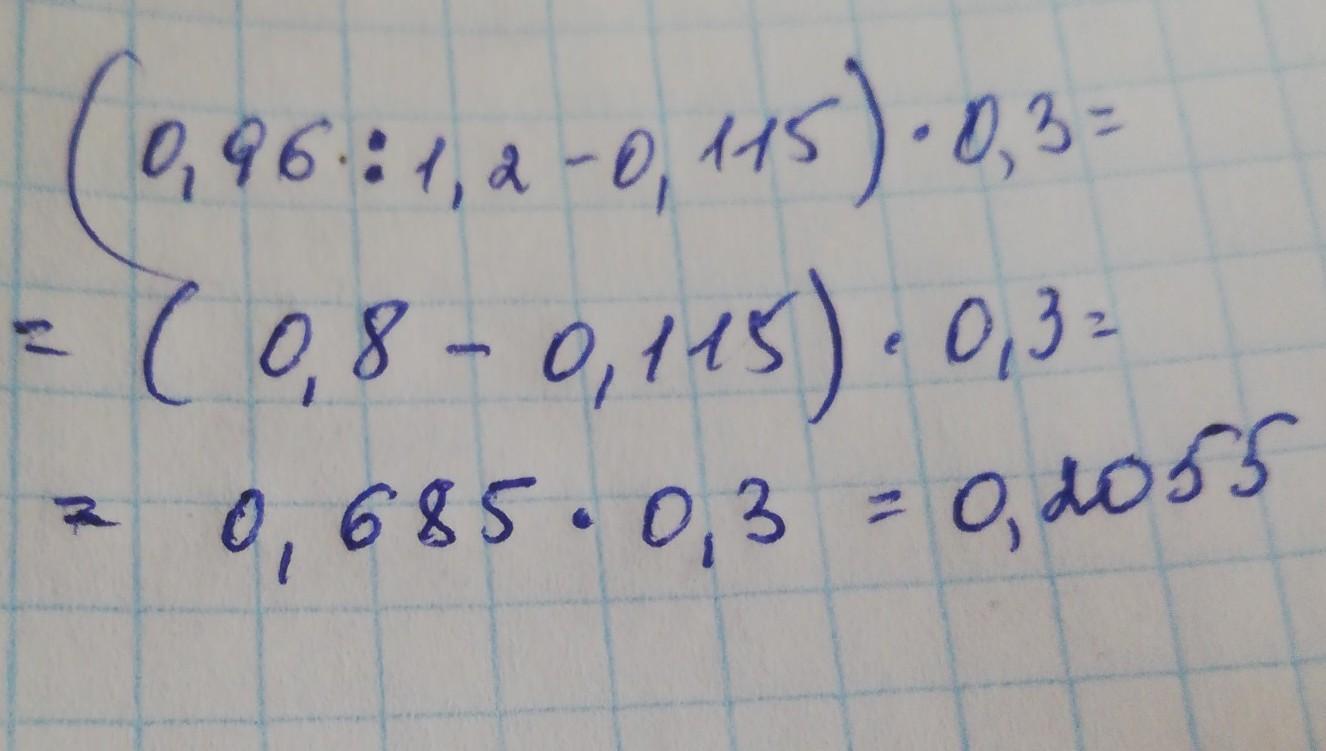 (0,96 : 1,2 - 0,115) · 0,3 =
= (0,8 - 0,115) · 0,3 =
= 0,685 · 0,3 = 0,2055